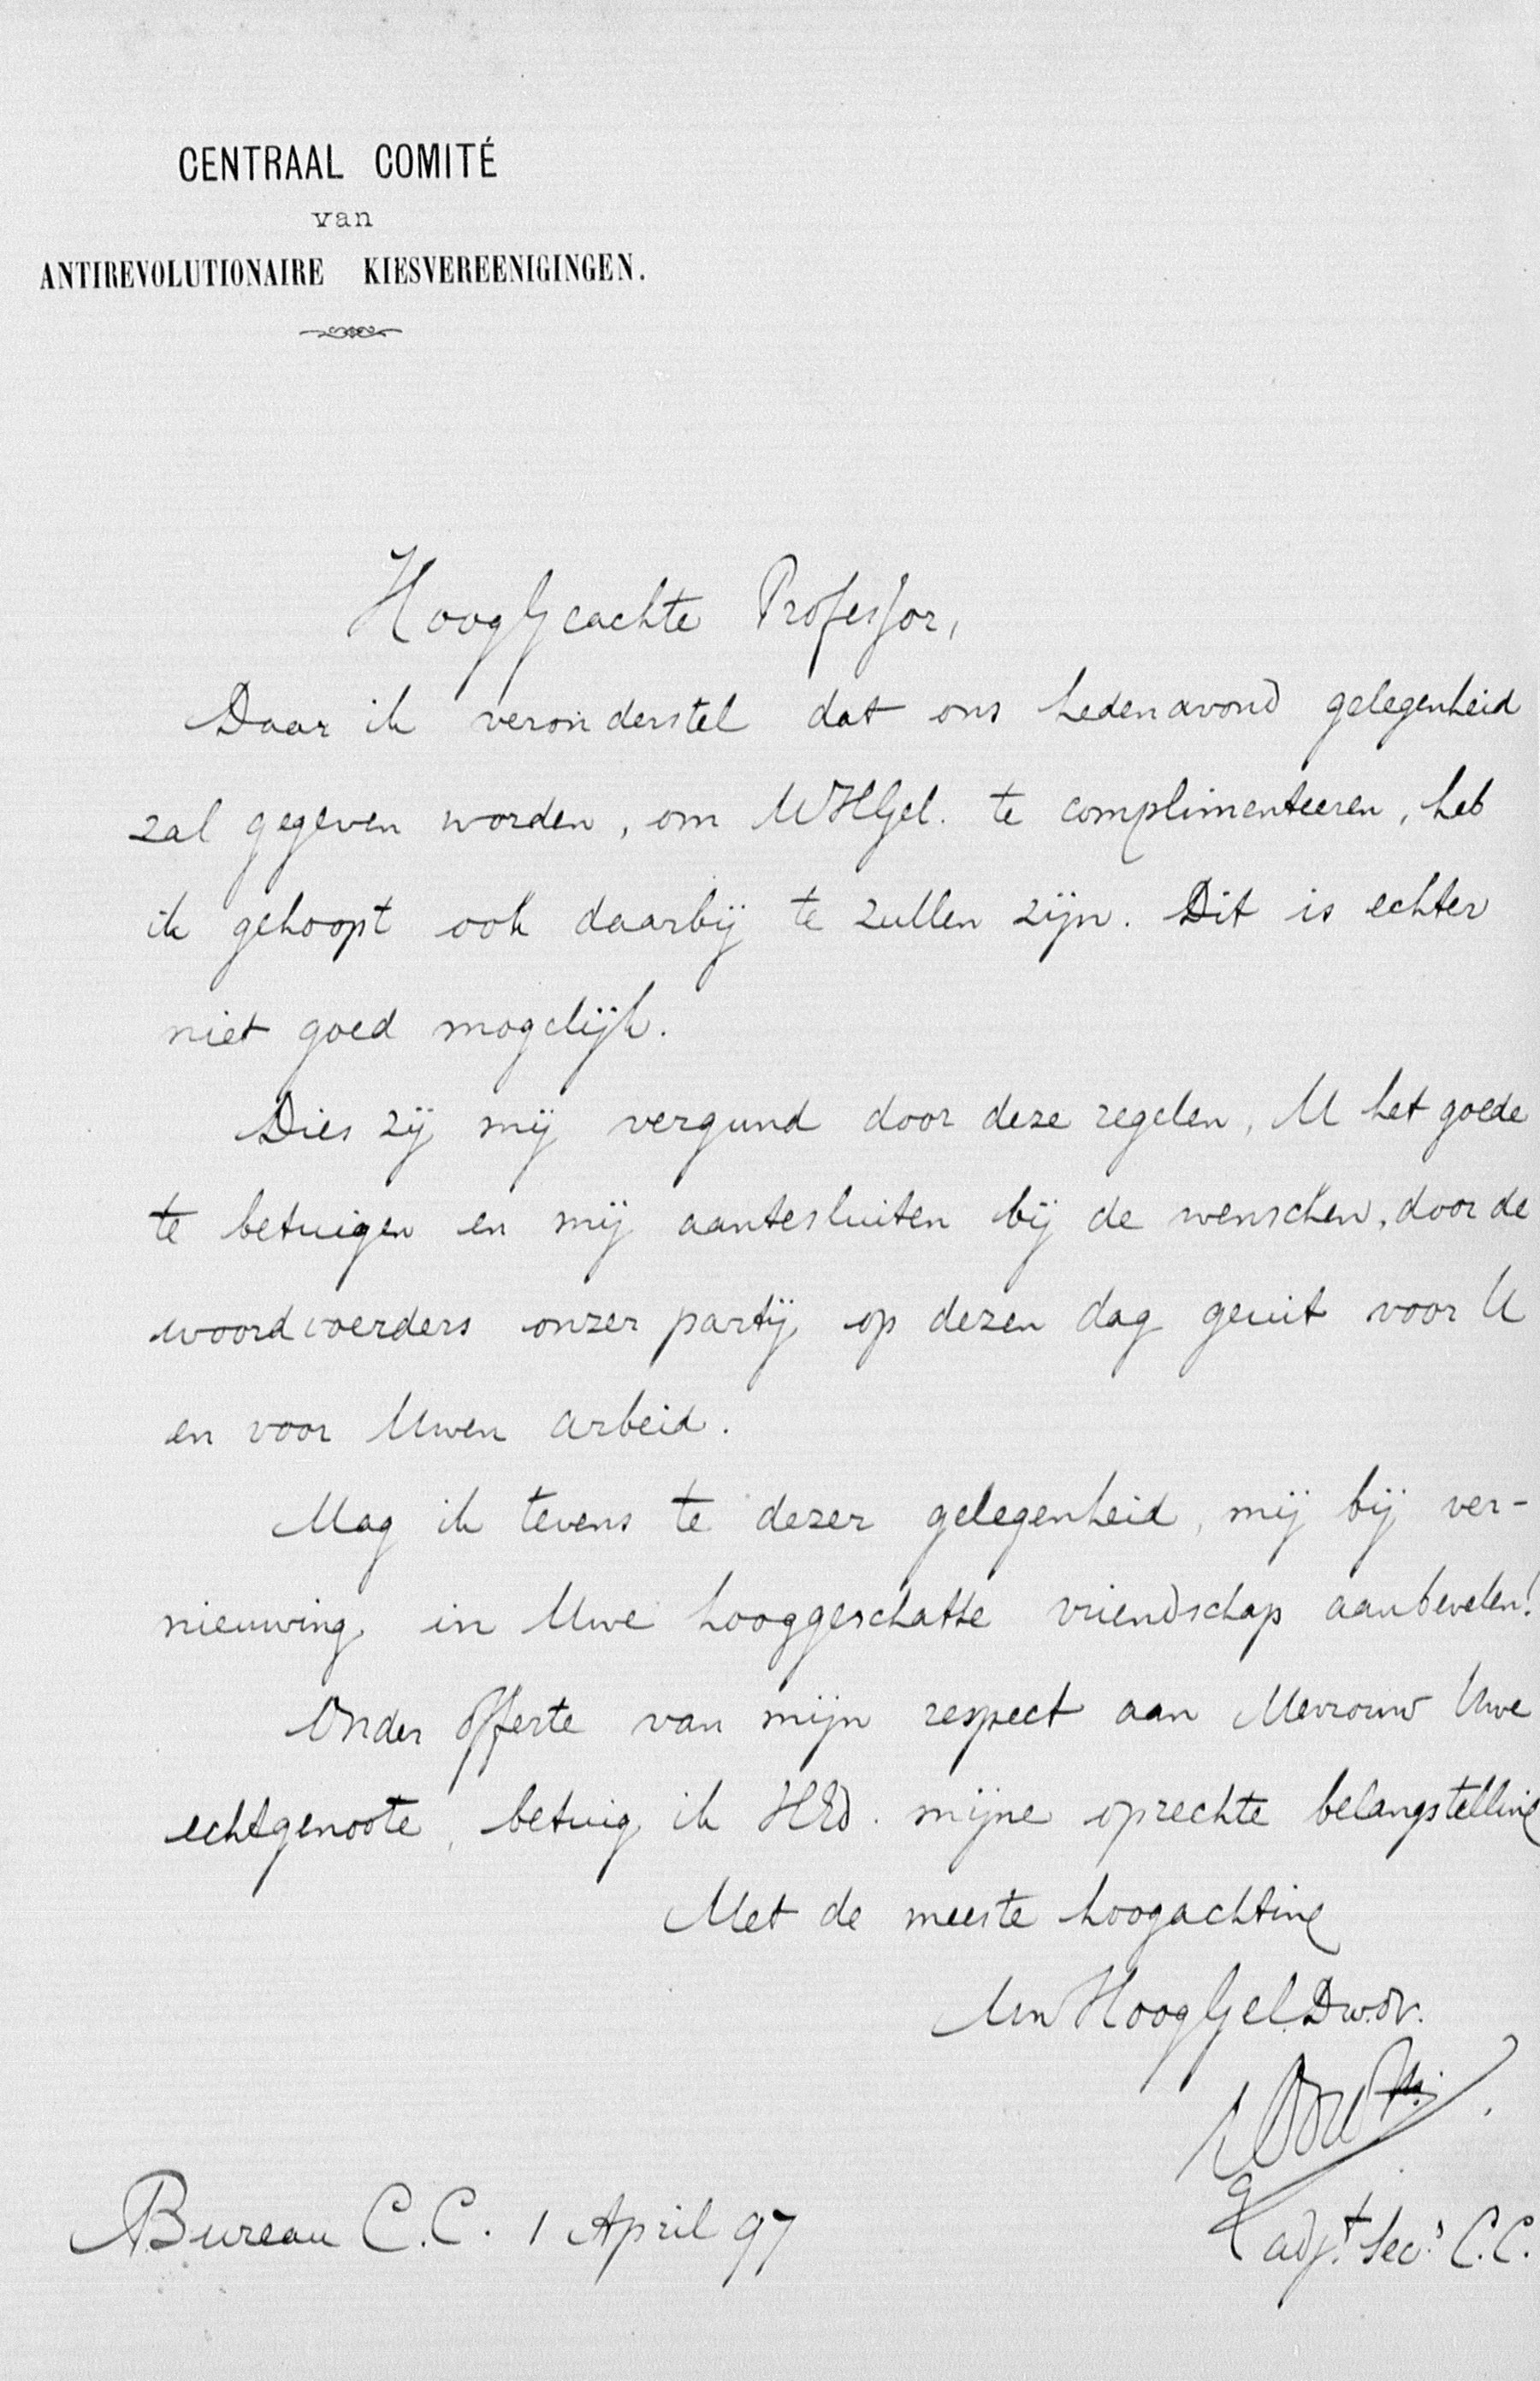 CENTRAAL COMITÉ
van
ANTIREVOLUTIONAIRE KIESVEREENIGINGEN.
HoogGeachte Professor,
Daar ik veronderstel dat ons hedenavond gelegenheid
zal gegeven worden, om UHGel. te complimenteeren, heb
ik gehoopt ook daarbij te zullen zijn. Dit is echter
niet goed mogelijk.
Dies zij mij vergund door deze regelen, U het goede
te betuigen en mij aantesluiten bij de wenschen, door de
woordvoerders onzer partij op dezen dag geuit voor U
en voor Uwen arbeid.
Mag ik tevens te dezer gelegenheid, mij bij ver-
nieuwing in Uwe hooggeschatte vriendschap aanbevelen!
Onder offerte van mijn respect aan Mevrouw Uwe
echtgenoote, betuig ik HEd. mijne oprechte belangstelling
Met de meeste hoogachting
Uw HoogGel. Dw. dr.
Bureau C.C. 1 April 97
adjt. Secs. C.C.